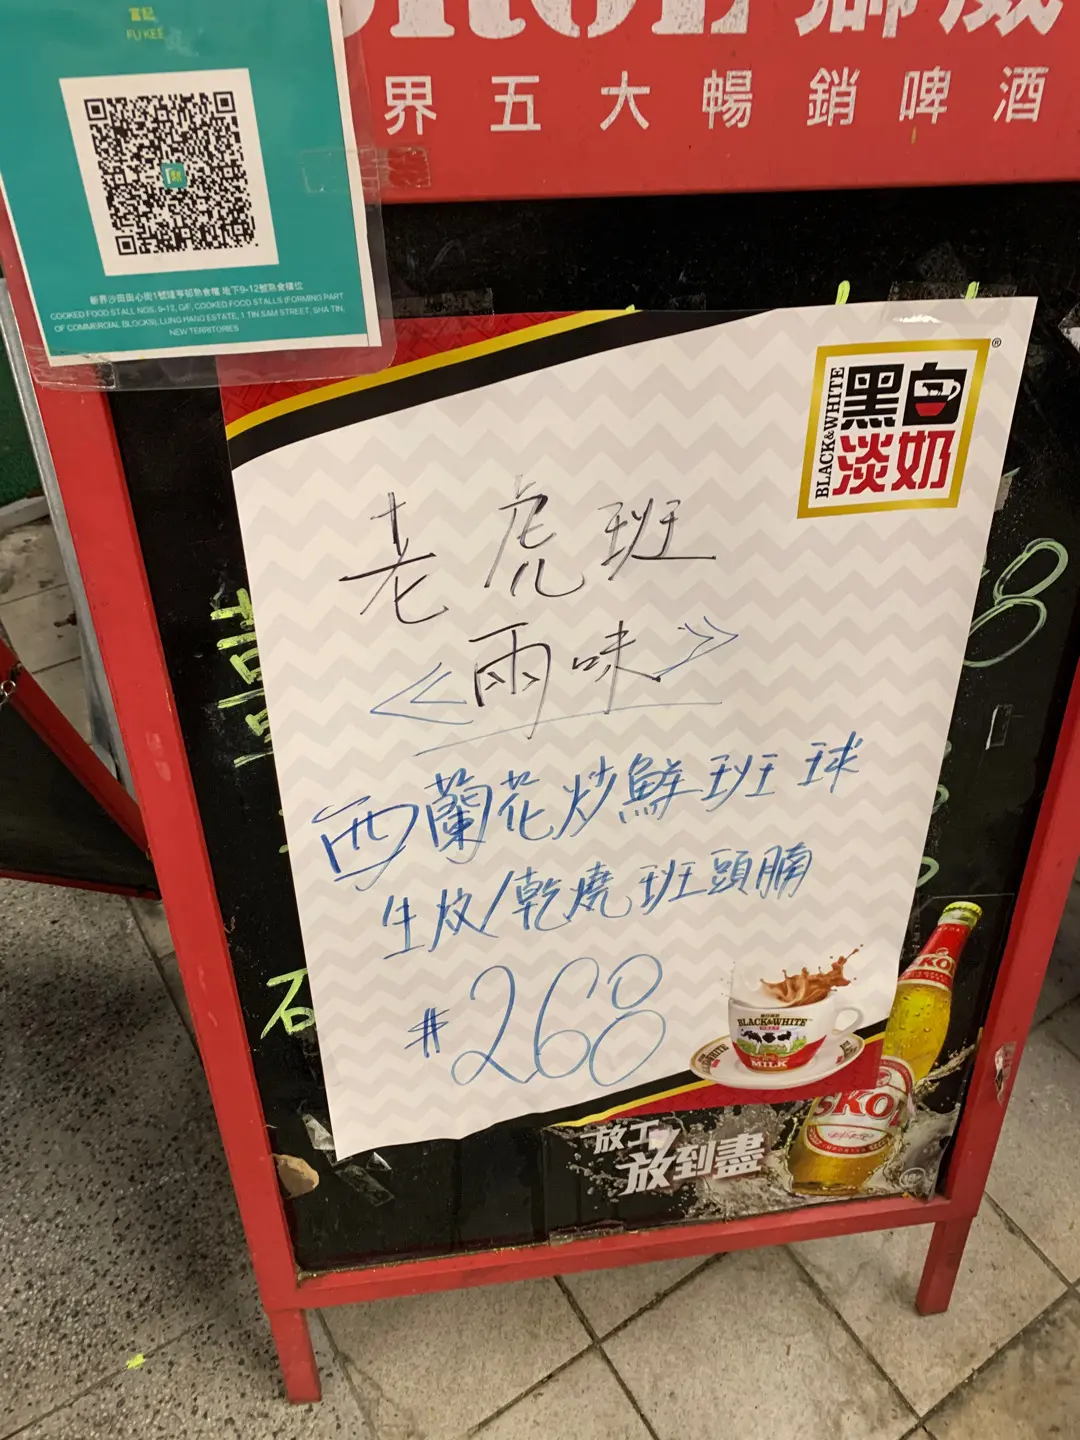 富記
FU KEE
界五大暢銷啤酒
新界沙田田心街1號隆亨邨熟食檔 地下9-12號熟食檔位
COOKED FOOD STALL NOS. 9-12, G/F, COOKED FOOD STALLS (FORMING PART
OF COMMERCIAL BLOCKS), LUNG HANG ESTATE, 1 TIN SAM STREET, SHA TIN,
NEW TERRITORIES
BLACK&WHITE
黑白
淡奶
®
老虎班
《兩味》
西蘭花炒鮮班球
生炆/乾燒班頭腩
#268
石
BLACK&WHITE
MILK
SKOL
放工
放到盡